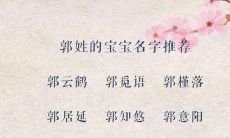 郭姓的宝宝名字推荐
郭云鹤 郭觅语 郭槿落
郭居延 郭知悠 郭意阳